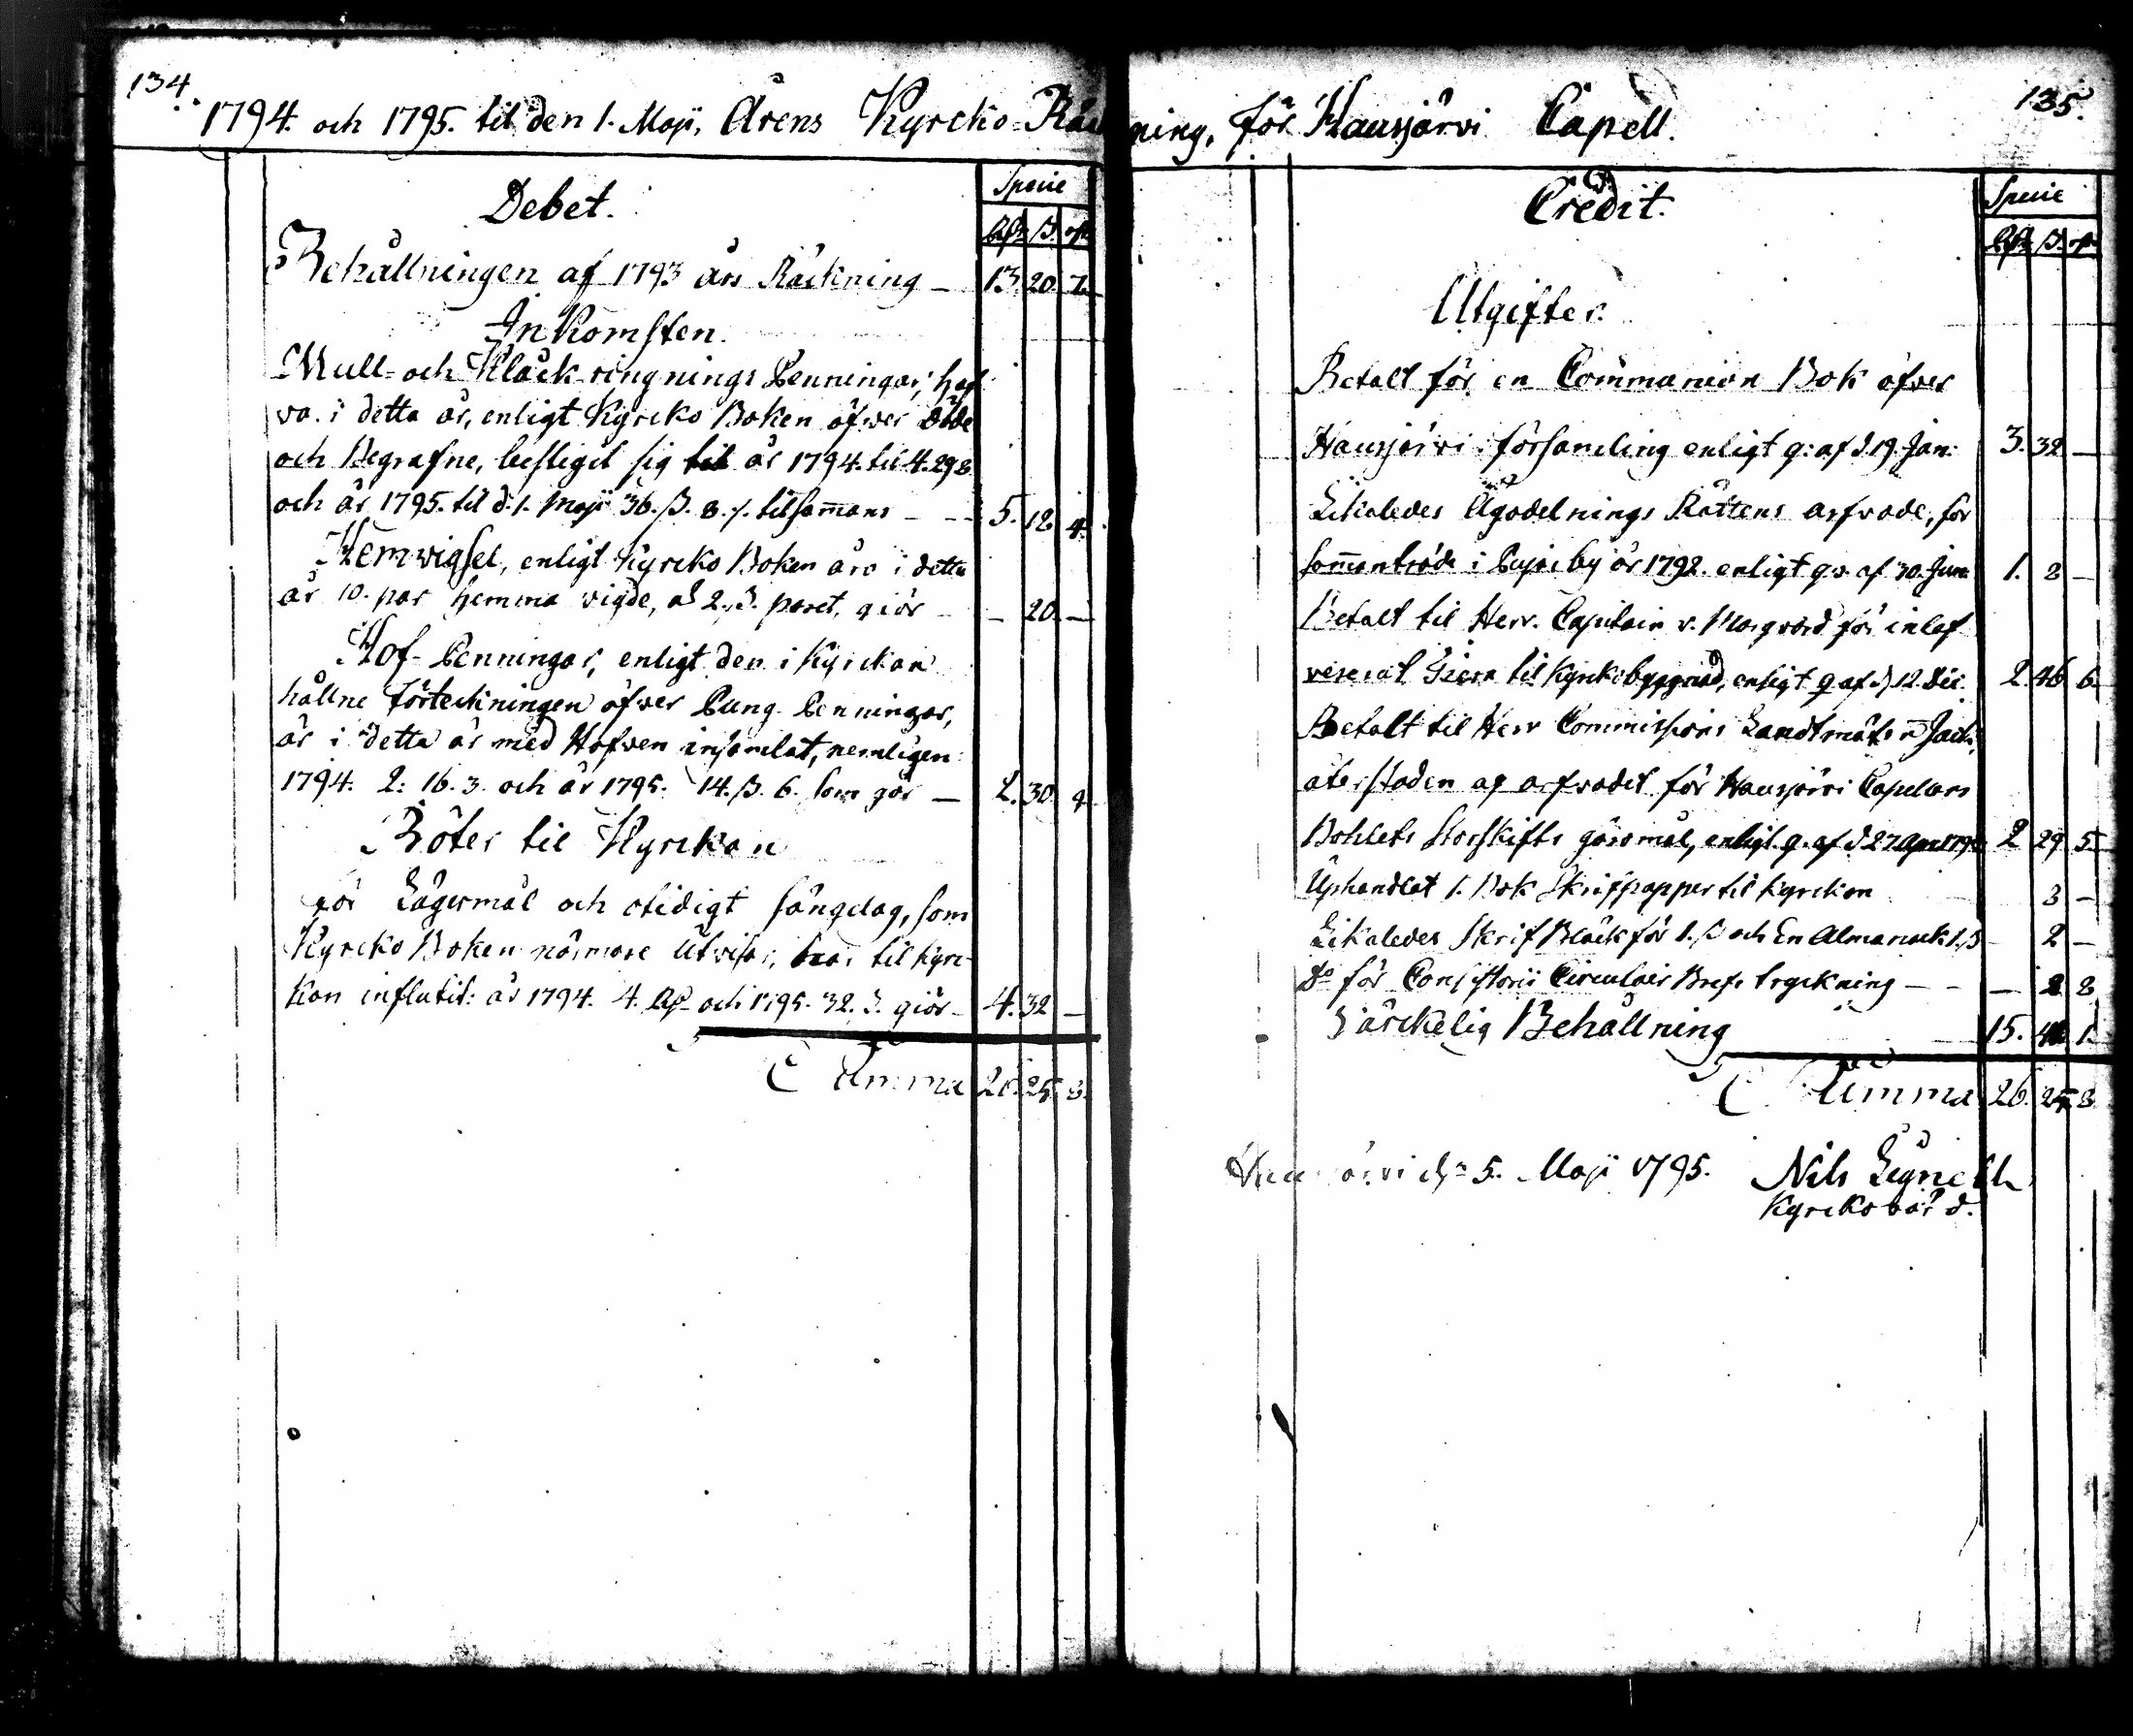 134.
1794. och 1795. til den 1. Maji, Årens Kyrcko-Räck
Debet.
Specie
Rdr ß. rst
Behållningen af 1793 års Räckning — 13. 20. 7.
Inkomsten.
Mull- och Klåck-ringnings Penningar, haf
va i detta år, enligt Kyrcko Boken öfver döde
och Begrafne, bestigit sig til år 1794. til 4. 29 8.
och år 1795. til d. 1. Maji 36. ß. 8. r. tilsam̄ans — — 5. 18. 4.
Hemvigsel, enligt Kyrcko Boken äro i detta
år 10. par hemma vigde, à 2. ß. paret, giör — — 20. —
Hof-Penningar, enligt den i Kyrckan
hållne förteckningen öfver Pung Penningar,
är i detta år med Hofven insamlat, nemligen:
1794. 2: 16. 3. och år 1795. 14. ß. 6. som gör — 2. 30. 9.
Böter til Kyrckan
för Lägermål och otidigt sängelag, som
Kyrcko Boken närmare utvisar, har til Kyrc-
kan influtit: år 1794. 4. Rdr och 1795. 32. ß. giör — 4. 32 —
Summa 26. 25. 8.
135.
ning, för Hausjärvi Capell.
Credit.
Specie
Rdr ß. rst
Utgifter.
Betalt för en Communion Bok öfver
Hausjärvi församling enligt q: af d. 19. Jan: 3. 32 —
Likaledes Ägodelnings Rättens arfvode, för
sam̄anträde i by år 1792. enligt q:o af 30. Jun. 1. 8 —
Betalt til Herr Capitain v. Morgvard för inlef
vererat til Kyrkobyggnad, enligt q af d. 12. Dec. 2. 46 6.
Betalt til Herr Commissions Landtmätrn
återstoden af arfvodet för Hausjärvi Capellans
Bohlets Storskifts göromål, enligt q. af d 27 April 179 2 29 5.
Uphandlat 1. Bok Skrifpapper til Kyrckan 8 —
Likaledes Skrif Bläck för 1. ß och En Almanack 1. ß — 2 —
Do för Consistorii Circulair Brefs tryckning — — — 2 8
Särckelig Behållning 15. 41. 1.
Summa 26. 25. 8
Hausjärvi dn 5. Maji 1795. Nils
Kyrckovärd.